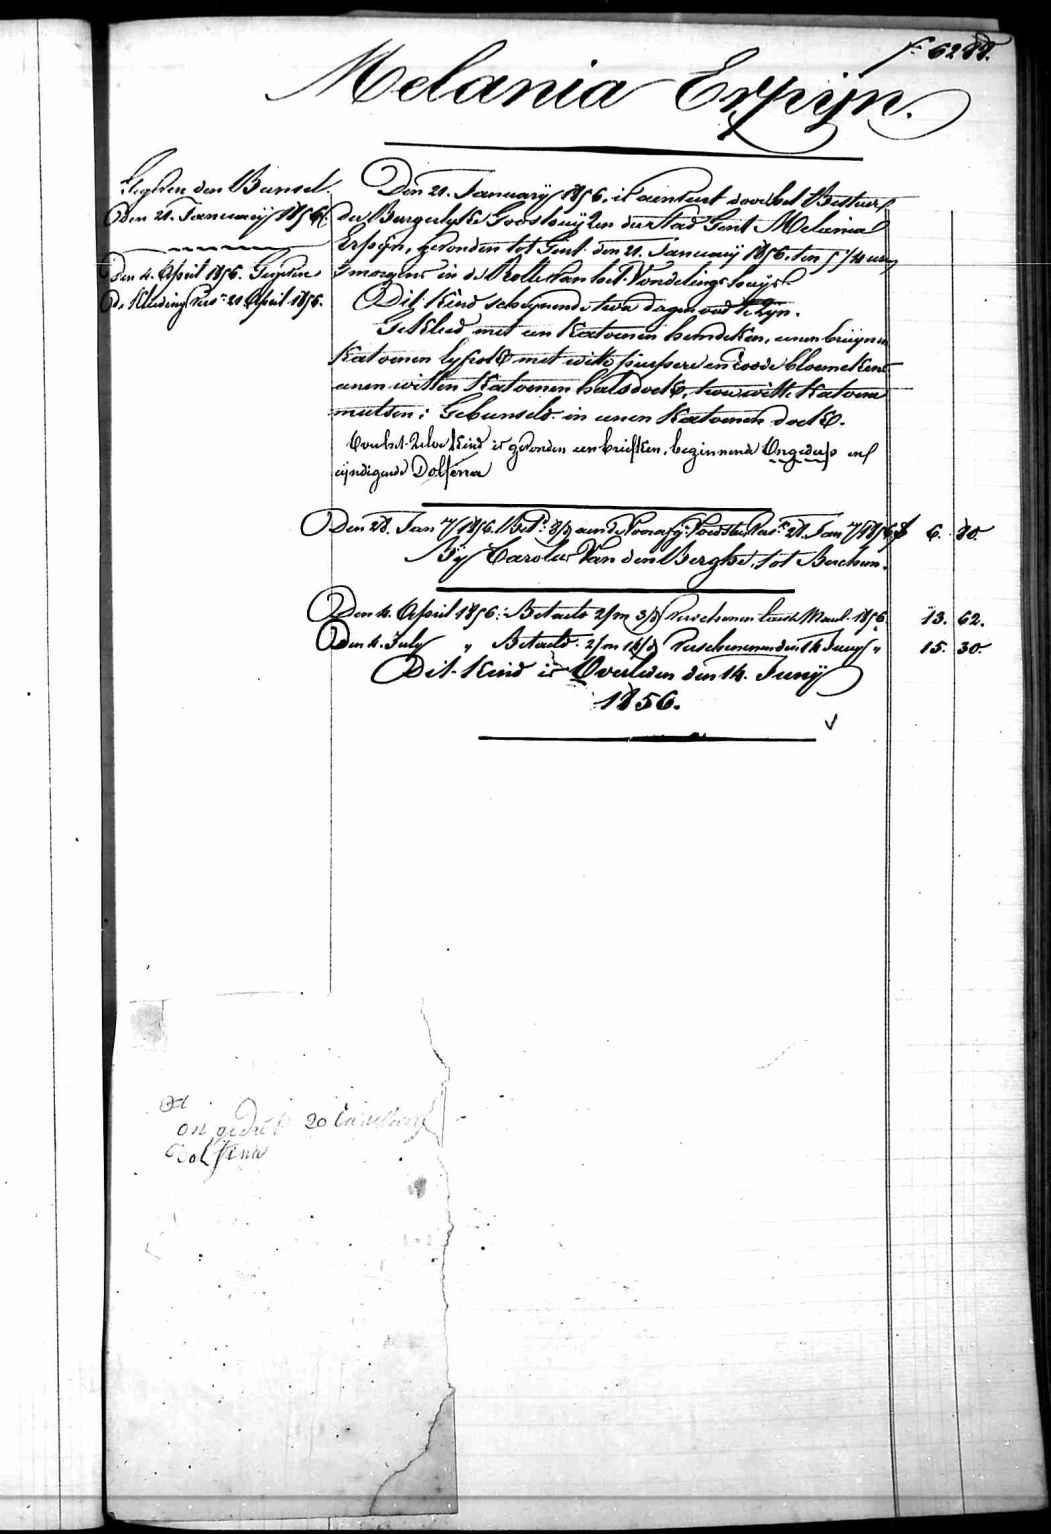 f.° 6288.
Melania Erpijn.
Gegeven den Bunsel
den 21. Januarij 1856.
Den 4. April 1856. Gegeven
de Kleeding Vers. 21 April 1856.
Den 21. Januarij 1856. is aenveert door het Bestuer
der Burgerlyke Godshuyzen der Stad Gent Melania
Erpijn, gevonden tot Gent den 21. Januarij 1856. ten 5 1/4 uer
'smorgens in de Rolle van het Vondelingshuys.
Dit Kind scheynende twee dagen oud te zyn.
Gekleed met een Katoenen hemdeken, eenen bruynen
Katoenen lyfrok met witte purpere en roode bloemekens
eenen witten Katoenen halsdoek, twee witte Katoene
mutsen; Gebunseld in eenen Katoenen doek.
Bij het zelve Kind is gevonden een briefken, beginnende Ongedeup en
eyndigende Dolfena
Den 28. Jan 7/1856. Bet. aen de Voorsz. Voedster 28. Jan 7/1856 f 6. 80.
Bij Carolus Van den Berghe, tot Berchem.
Den 4. April 1856. Betaeld 2/m 3/d Verschenen 1856. 13. 62.
Den 4. July „ Betaeld 2/m 14/d Verschenen den 14 Juny „ 15. 30
Dit Kind is Overleden den 14. Junij
1856.
on gedeupt 20 Januwarij
Dolfina